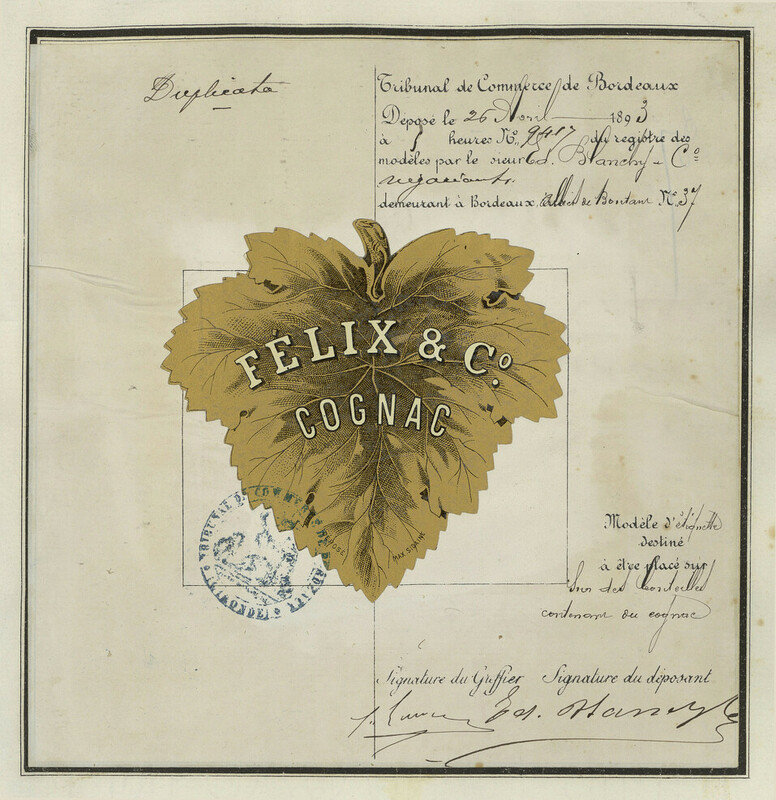 Duplicata
Tribunal de Commerce de Bordeaux
Déposé le 26 Avril 1893
à heures N° 9417 du registre des
modèles par le sieur Ed. Blanchy & Cº
négociants
demeurant à Bordeaux, de Nº 37
FÉLIX & Cº.
COGNAC
DÉPOSÉ
TRIBUNAL DE COMMERCE DE BORDEAUX
(GIRONDE)
Modèle d'étiquette
destiné
à être placé sur
sur des bouteilles
contenant du cognac
Signature du Greffier Signature du déposant
Ed. Blanchy & Co